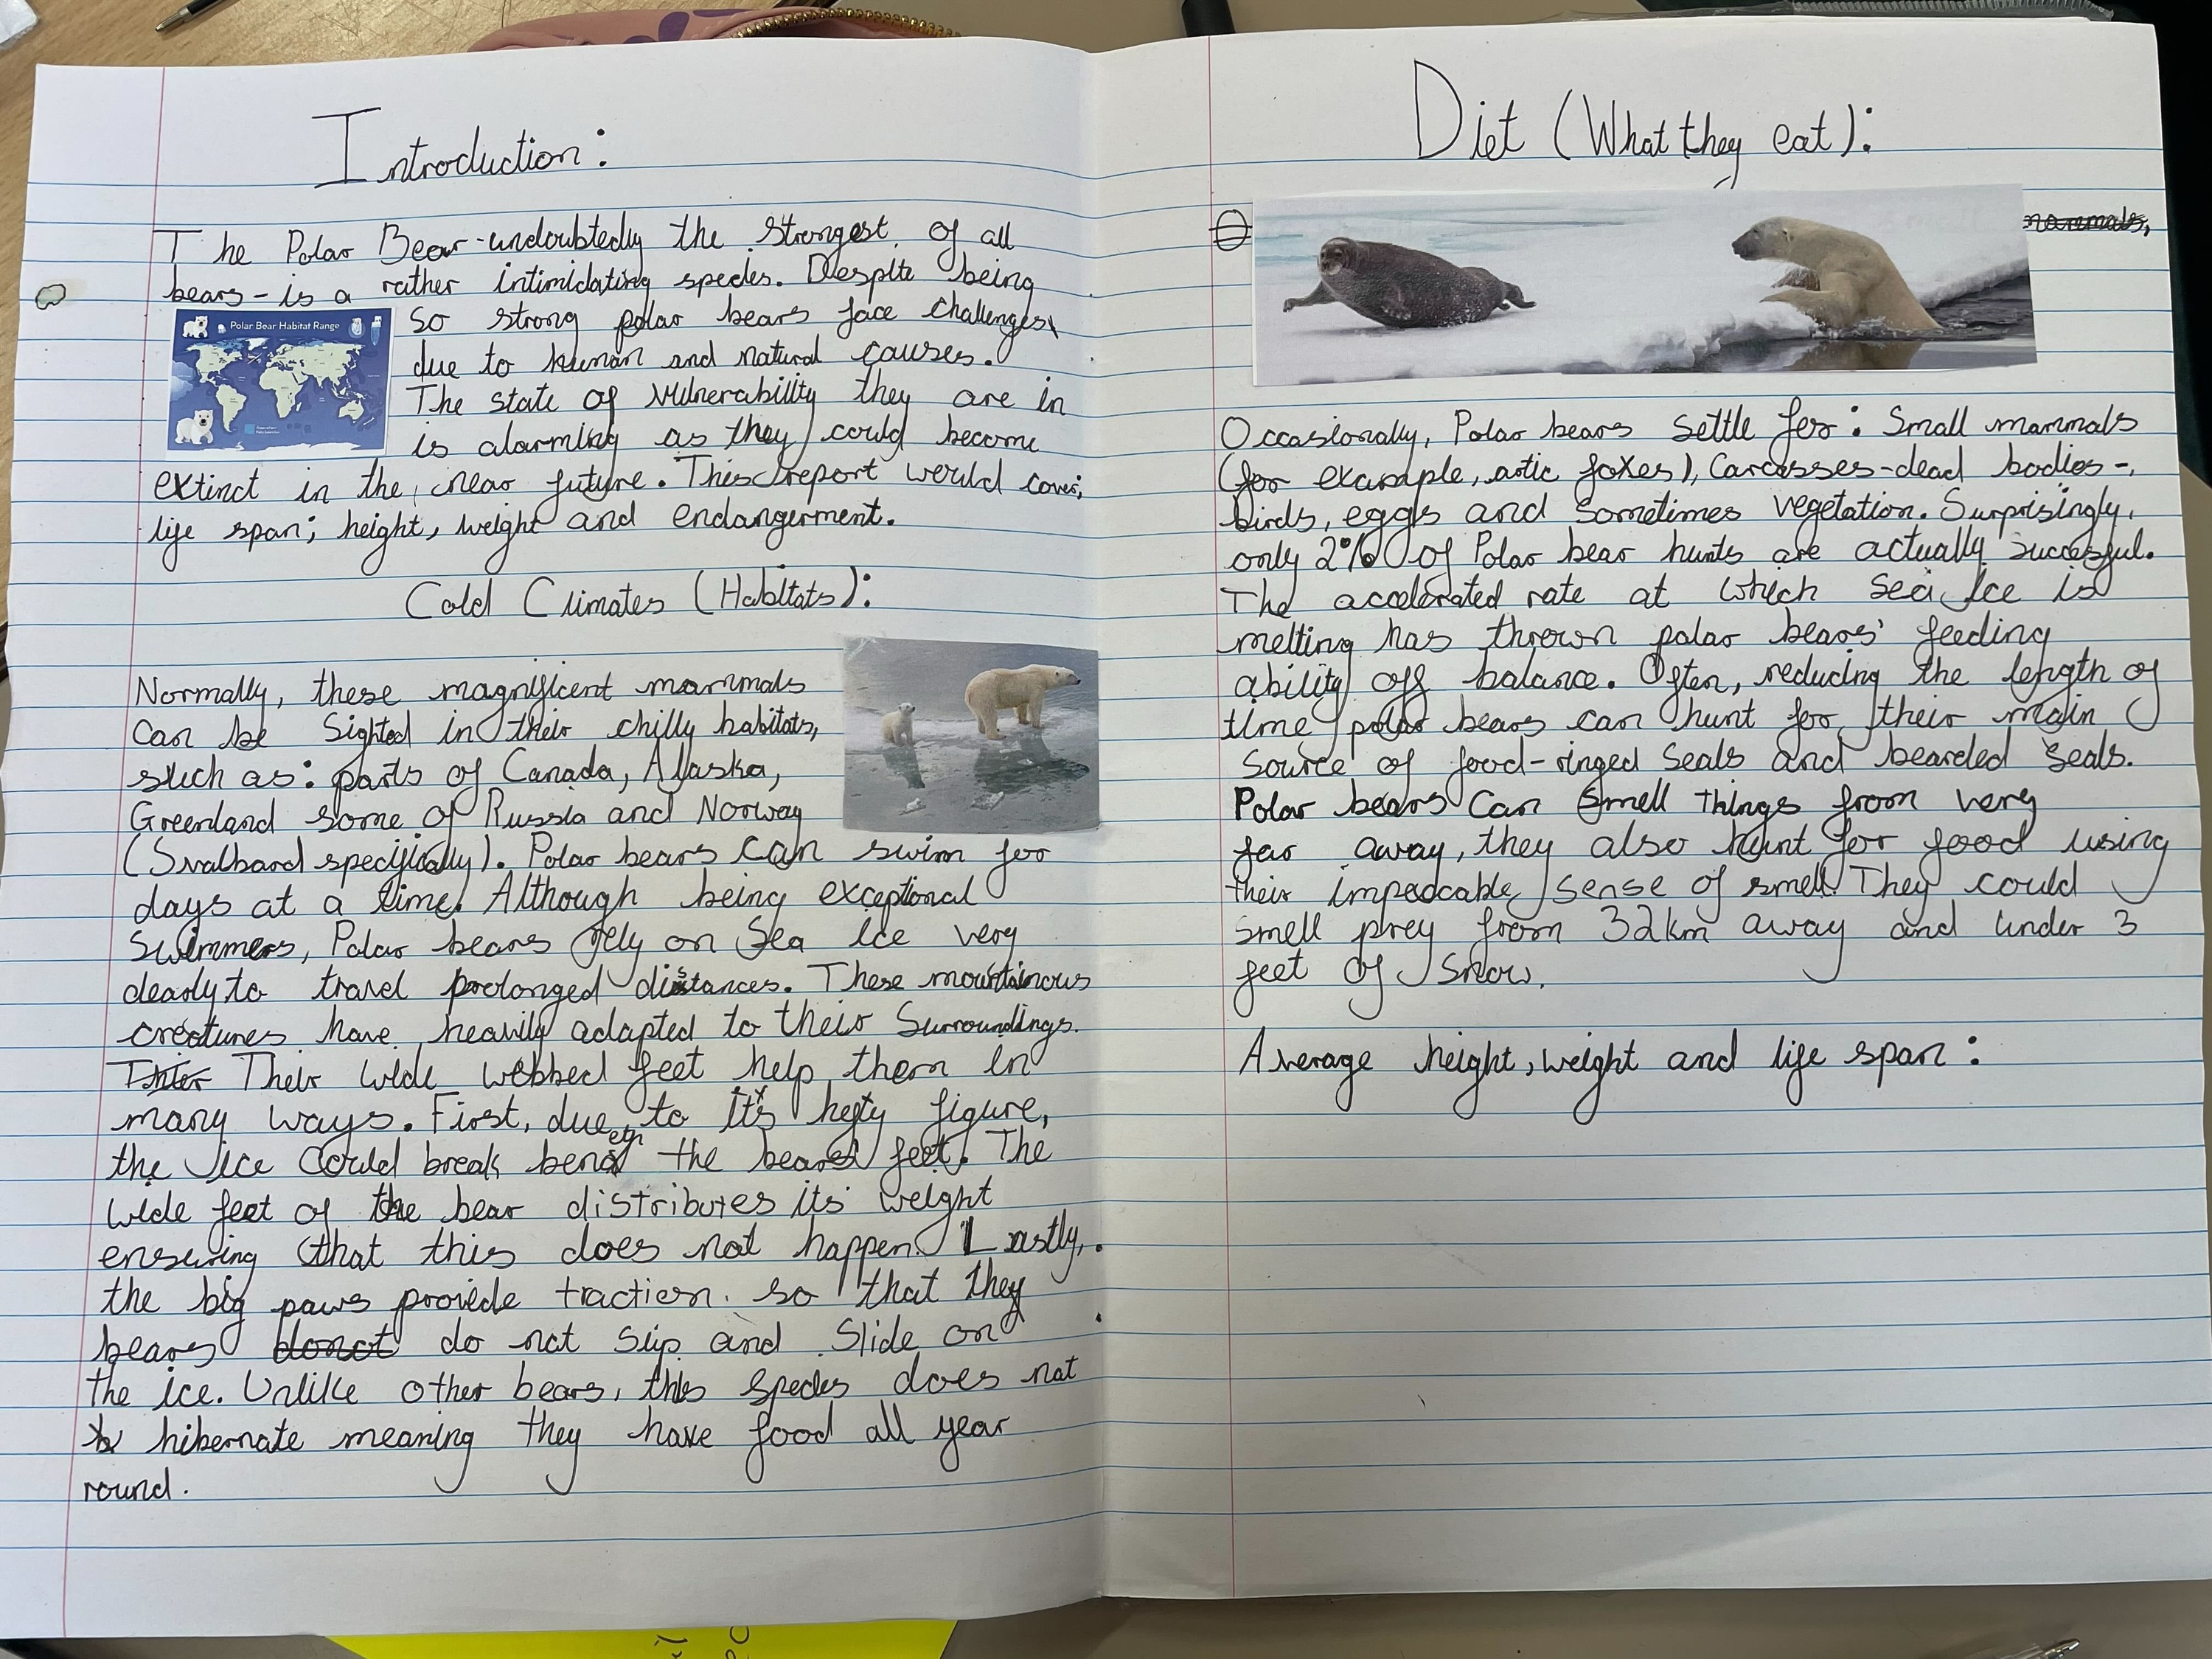 Introduction:
The Polar Bear-undoubtedly the strongest of all
bears- is a rather intimidating species. Despite being
Polar Bear Habitat Range
so strong polar bears face challenges
due to human and natural causes.
The state of vulnerability they are in
is alarming as they could become
extinct in the near future. This report would cover;
life span; height, weight and endangerment.
Cold Climates (Habitats):
Normally, these magnificent mammals
can be sighted in their chilly habitats,
such as: parts of Canada, Alaska,
Greenland some of Russia and Norway
(Svalbard specifically). Polar bears can swim for
days at a time. Although being exceptional
swimmers, Polar bears rely on Sea Ice very
dearly to travel prolonged distances. These mountainous
creatures have heavily adapted to their surroundings.
Their Wide webbed feet help them in
many ways. First, due to its hefty figure,
the ice could break beneath the bears feet. The
wide feet of the bear distributes its weight
ensuring that this does not happen. Lastly,
the big paws provide traction so that they
bears donot do not slip and slide on
the ice. Unlike other bears, this species does not
hibernate meaning they have food all year
round.
Diet (What they eat):
Occasionally, Polar bears settle for: Small mammals
(for example, artic foxes), Carcasses-dead bodies-,
birds, eggs and sometimes vegetation. Surprisingly,
only 2% of Polar bear hunts are actually succesful.
The accelerated rate at which sea Ice is
melting has thrown polar bears' feeding
ability off balance. Often, reducing the length of
time polar bears can hunt for their main
source of food-ringed seals and bearded seals.
Polar bears Can smell things from very
far away, they also hunt for food using
their impeccable sense of smell. They could
smell prey from 32km away and under 3
feet of snow.
Average height, weight and life span: